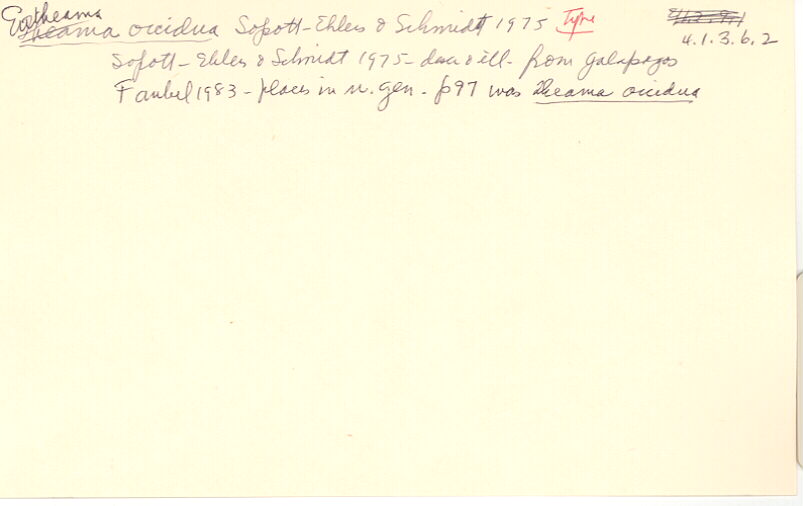 Eutheama
Theama occidua Sopott-Ehlers & Schmidt 1975 Type
4.1.3.6.2
Sopott-Ehlers & Schmidt 1975 - desc & ill. from Galapagos
Faubel 1983 - places in n. gen. p97 was Theama occidua